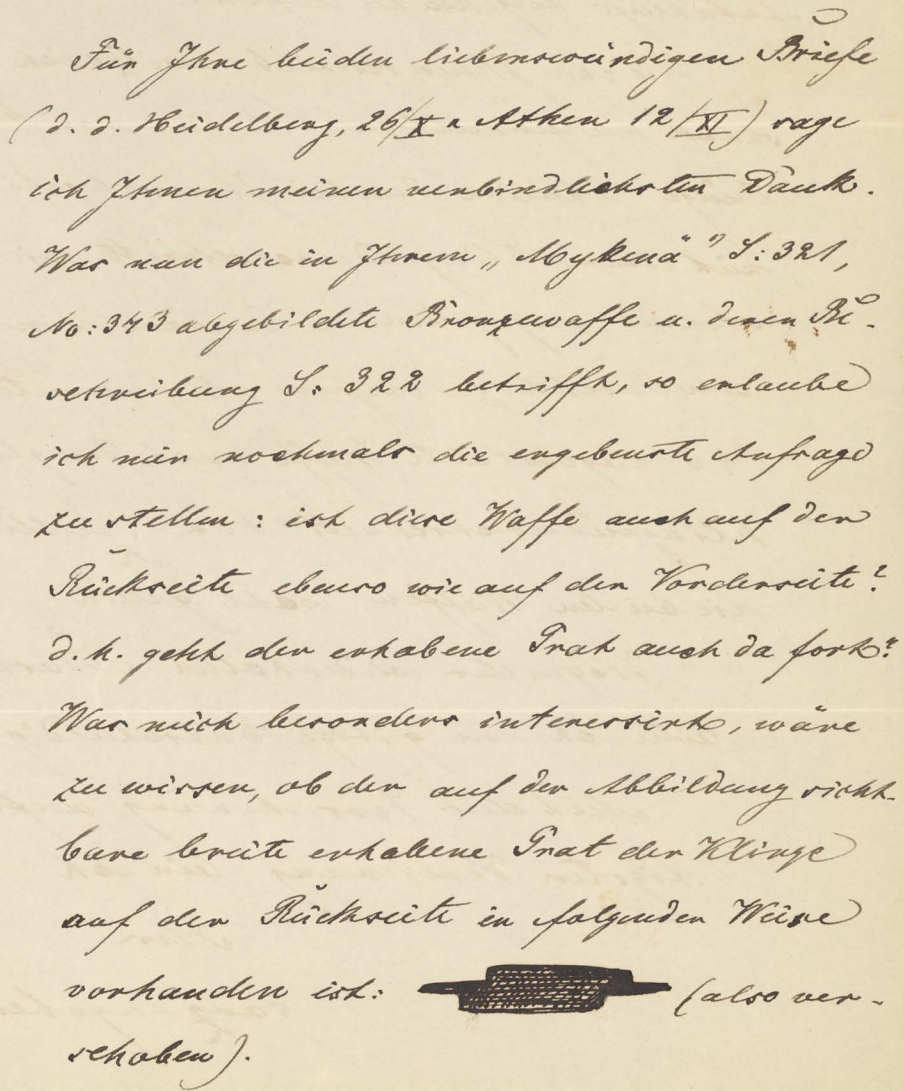 Für Ihre beiden liebenswürdigen Briefe
(d. d. Heidelberg, 26/X u Athen 12/XI) sage
ich Ihnen meinen verbindlichsten Dank.
Was nun die in Ihrem „Mykenä" S: 321,
No: 343 abgebildete Bronzewaffe u. deren Be-
schreibung S: 322 betrifft, so erlaube
ich mir nochmals die ergebenste Anfrage
zu stellen: ist diese Waffe auch auf der
Rückseite ebenso wie auf der Vorderseite?
d. h. geht der erhabene Grat auch da fort?
Was mich besonders interessirt, wäre
zu wissen, ob der auf der Abbildung sicht-
bare breite erhabene Grat der Klinge
auf der Rückseite in folgender Weise
vorhanden ist: (also ver-
schoben).